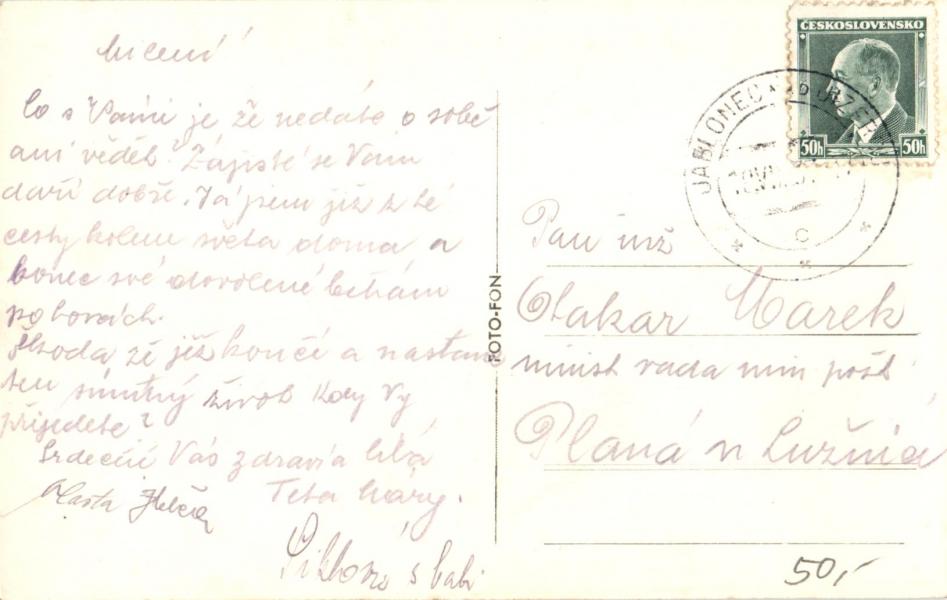 Milení!
Co s Vámi je že nedáte o sobě
ani vědět? Zajisté se Vám
daří dobře. Já jsem již z té
cesty kolem světa doma a
konec své dovolené běhám
po horách.
Škoda že již končí a nastane
ten smutný život Kdy Vy
přijedete?
Srdečně Vás zdraví a líbá
Teta Máry.
Vlasta
s babi
FOTO-FON
ČESKOSLOVENSKO
50h 50h
JABLONEC NAD JIZEROU
C
Pan inž
Otakar Marek
minist rada min pošt
Planá n Lužnicí
50,-